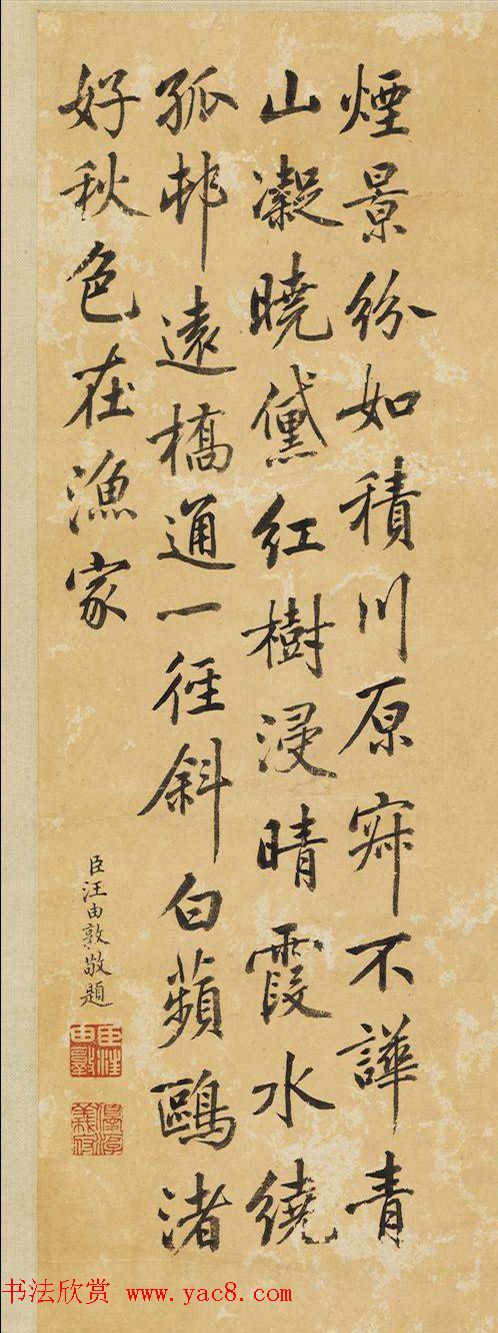 煙景紛如積川原寂不譁青
山凝曉黛紅樹浸晴霞水繞
孤邨遠橋通一徑斜白蘋鷗渚
好秋色在漁家
臣汪由敦敬題
书法欣赏 www.yac8.com